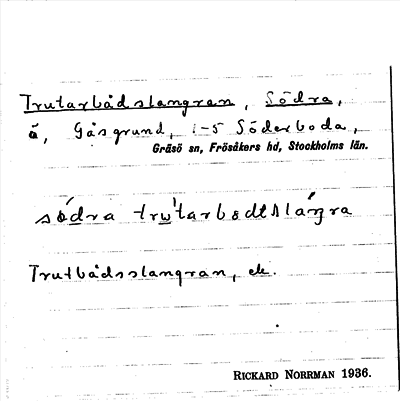 Trutarbådslangran, Södra,
å, Gåsgrund, i-5 Söderboda,
Gräsö sn, Frösåkers hd, Stockholms län.
södra
Trutbådsslangran, ek.
RICKARD NORRMAN 1936.